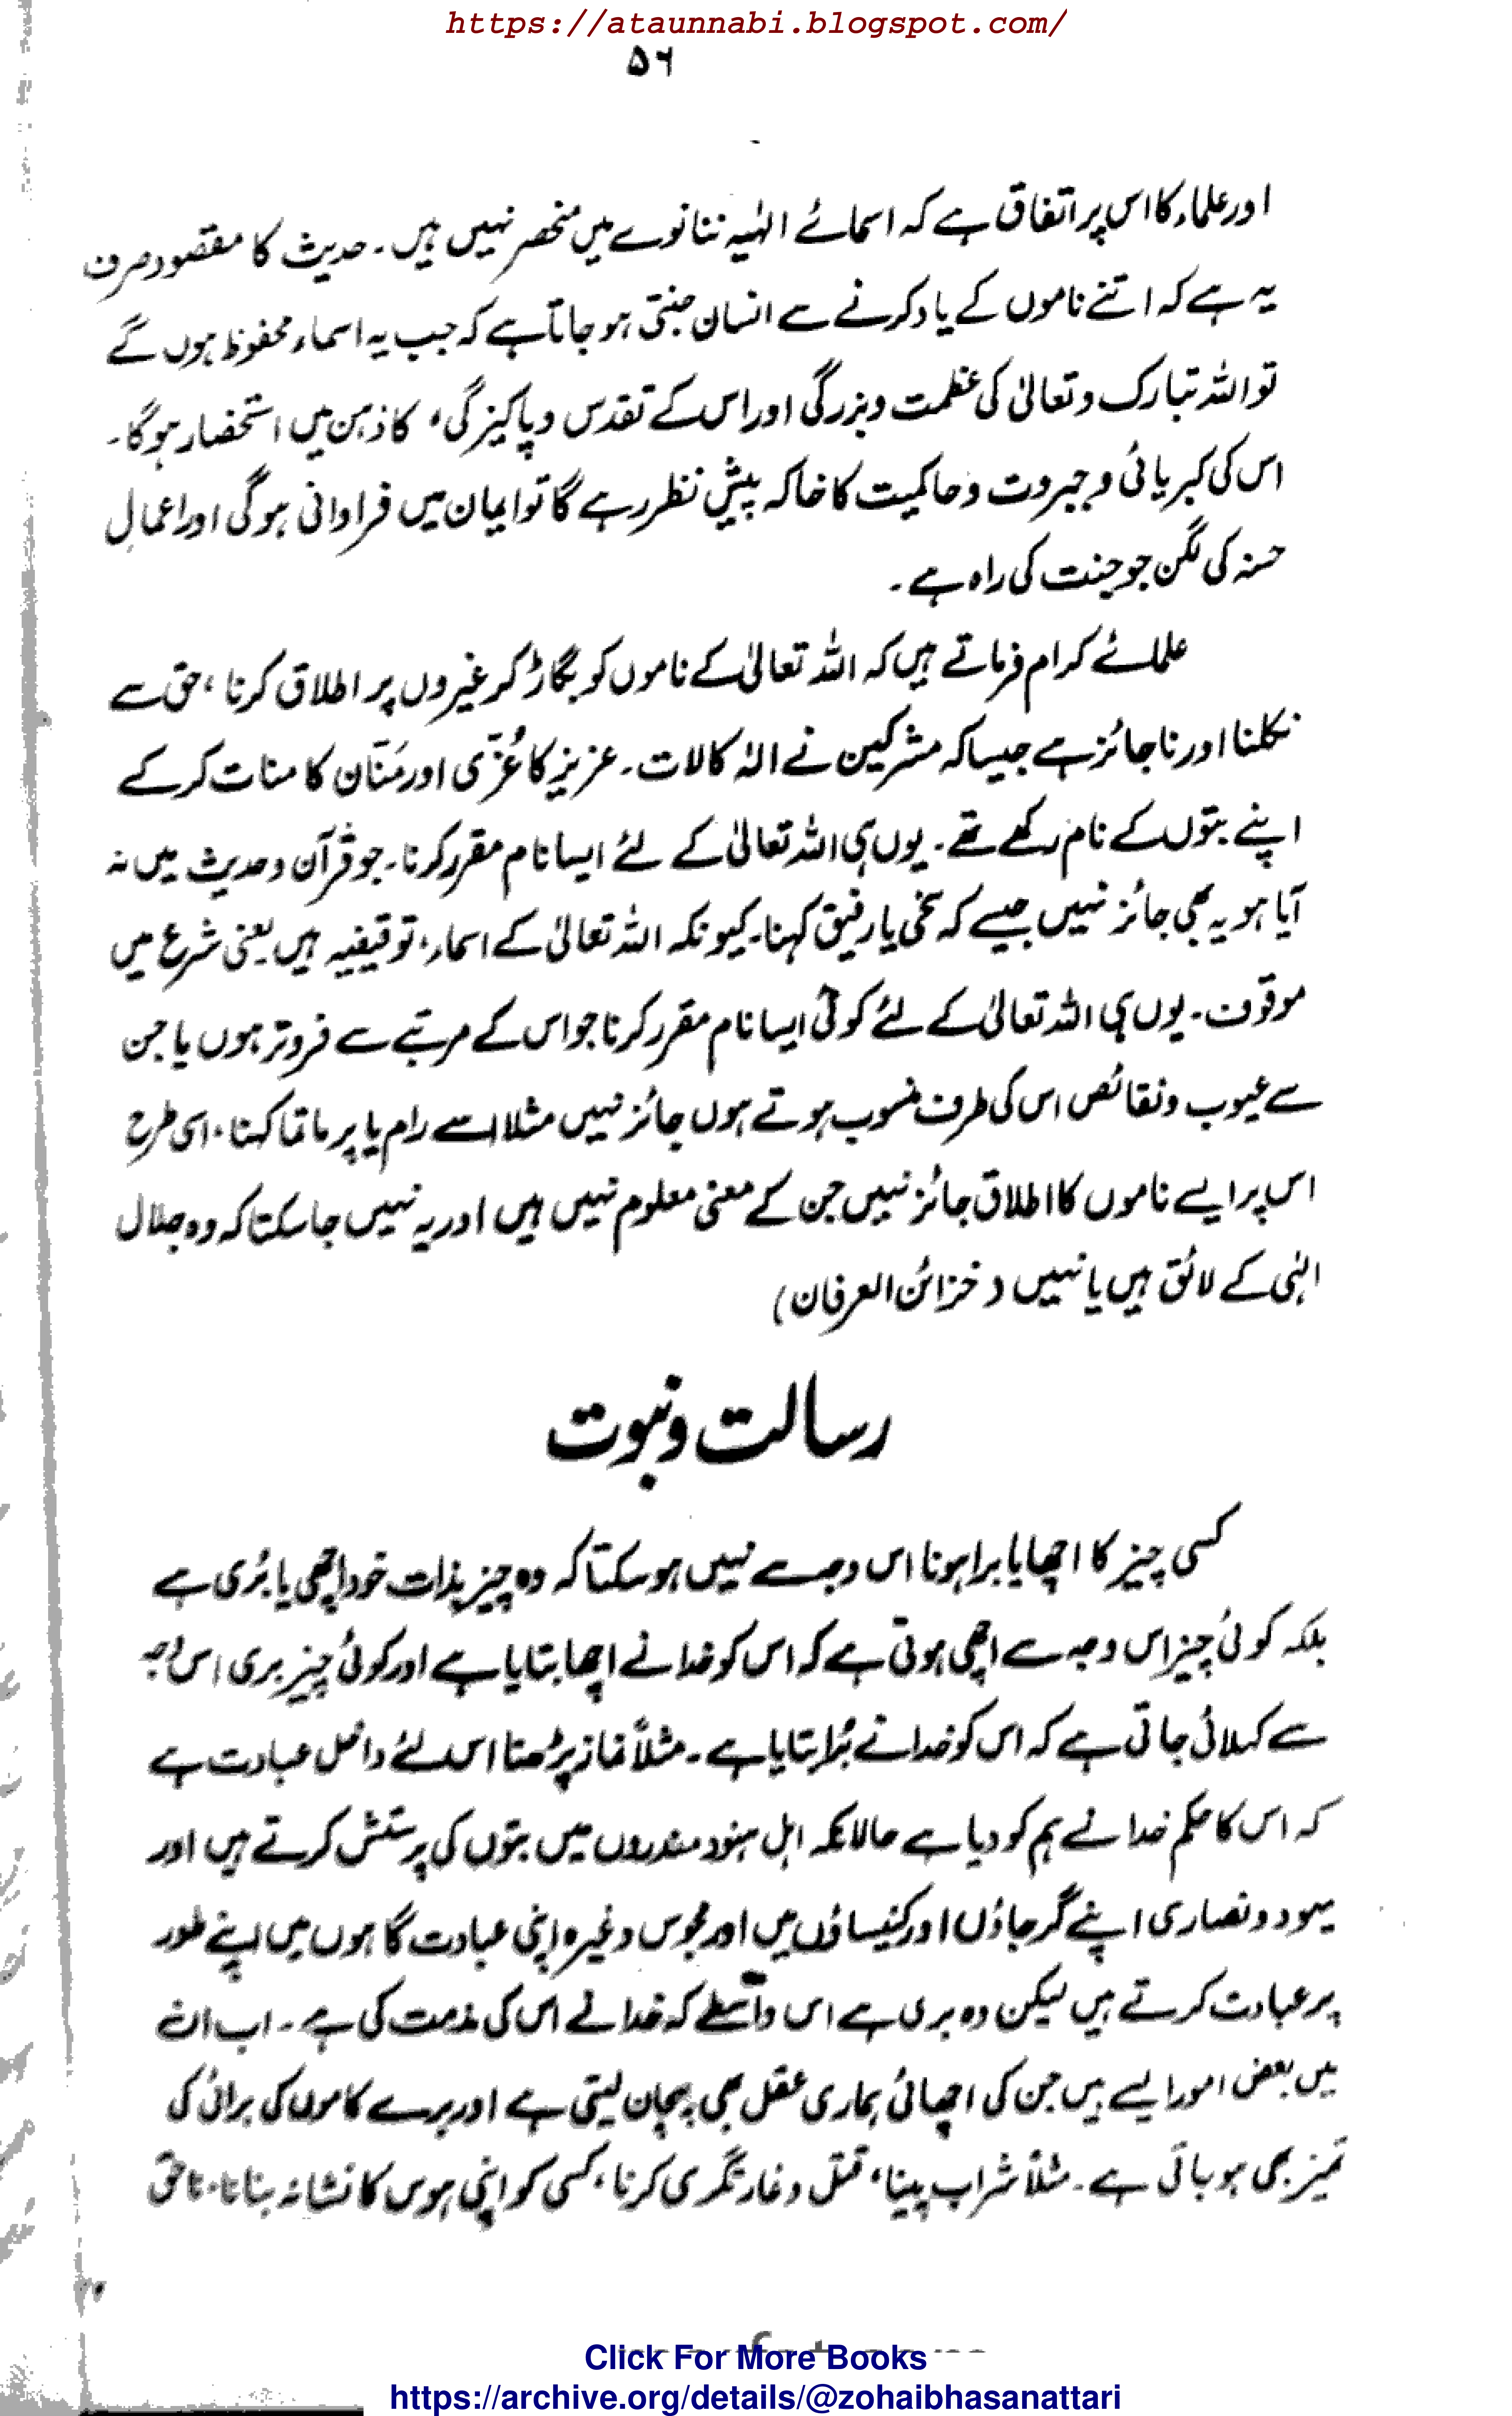 https://ataunnabi.blogspot.com/
۵۶
اور علماء کا اس پر اتفاق ہے کہ اسمائے الٰہیہ ننانوے میں منحصر نہیں ہیں۔ حدیث کا مقصود صرف
یہ ہے کہ اتنے ناموں کے یاد کرنے سے انسان جنتی ہو جاتا ہے کہ جب یہ اسماء محفوظ ہوں گے
تو اللہ تبارک و تعالیٰ کی عظمت و بزرگی اور اس کے تقدس و پاکیزگیٔ کا ذہن میں استحضار ہوگا۔
اس کی کبریائی و جبروت و حاکمیت کا خاکہ پیش نظر رہے گا تو ایمان میں فراوانی ہوگی اور اعمالِ
حسنہ کی لگن جو جنت کی راہ ہے۔
علمائے کرام فرماتے ہیں کہ اللہ تعالیٰ کے ناموں کو بگاڑ کر غیروں پر اطلاق کرنا، حق سے
نکلنا اور ناجائز ہے جیسا کہ مشرکین نے الٰہ کا لات۔ عزیز کا عُزّٰی اور مَنّان کا منات کر کے
اپنے بتوں کے نام رکھے تھے۔ یوں ہی اللہ تعالیٰ کے لئے ایسا نام مقرر کرنا۔ جو قرآن و حدیث میں نہ
آیا ہو یہ بھی جائز نہیں جیسے کہ سخی یا رفیق کہنا۔ کیونکہ اللہ تعالیٰ کے اسماء، توقیفیہ ہیں یعنی شرع میں
موقوف۔ یوں ہی اللہ تعالیٰ کے لئے کوئی ایسا نام مقرر کرنا جو اس کے مرتبے سے فروتر ہوں یا جن
سے عیوب و نقائص اس کی طرف منسوب ہوتے ہوں جائز نہیں مثلا اسے رام یا پرماتما کہنا، اسی طرح
اس پر ایسے ناموں کا اطلاق جائز نہیں جن کے معنی معلوم نہیں ہیں اور یہ نہیں جا سکتا کہ وہ جلال
الٰہی کے لائق ہیں یا نہیں (خزائن العرفان)
رسالت و نبوت
کسی چیز کا اچھا یا برا ہونا اس وجہ سے نہیں ہو سکتا کہ وہ چیز بذات خود اچھی یا بُری ہے
بلکہ کوئی چیز اس وجہ سے اچھی ہوتی ہے کہ اس کو خدا نے اچھا بتایا ہے اور کوئی چیز بری اس وجہ
سے کہلائی جاتی ہے کہ اس کو خدا نے بُرا بتایا ہے۔ مثلاً نماز پڑھنا اس لئے داخل عبادت ہے
کہ اس کا حکم خدا نے ہم کو دیا ہے حالانکہ اہل ہنود مندروں میں بتوں کی پرستش کرتے ہیں اور
یہود و نصاری اپنے گرجاؤں اور کنیساؤں میں اور مجوس وغیرہ اپنی عبادت گاہوں میں اپنے طور
پر عبادت کرتے ہیں لیکن وہ بری ہے اس واسطے کہ خدا نے اس کی مذمت کی ہے۔ اب ان
میں بعض امور ایسے ہیں جن کی اچھائی ہماری عقل بھی پہچان لیتی ہے اور برے کاموں کی برائی کی
تمیز بھی ہو جاتی ہے۔ مثلاً شراب پینا، قتل و غارتگری کرنا، کسی کو اپنی ہوس کا نشانہ بنانا، ناحق
Click For More Books
https://archive.org/details/@zohaibhasanattari